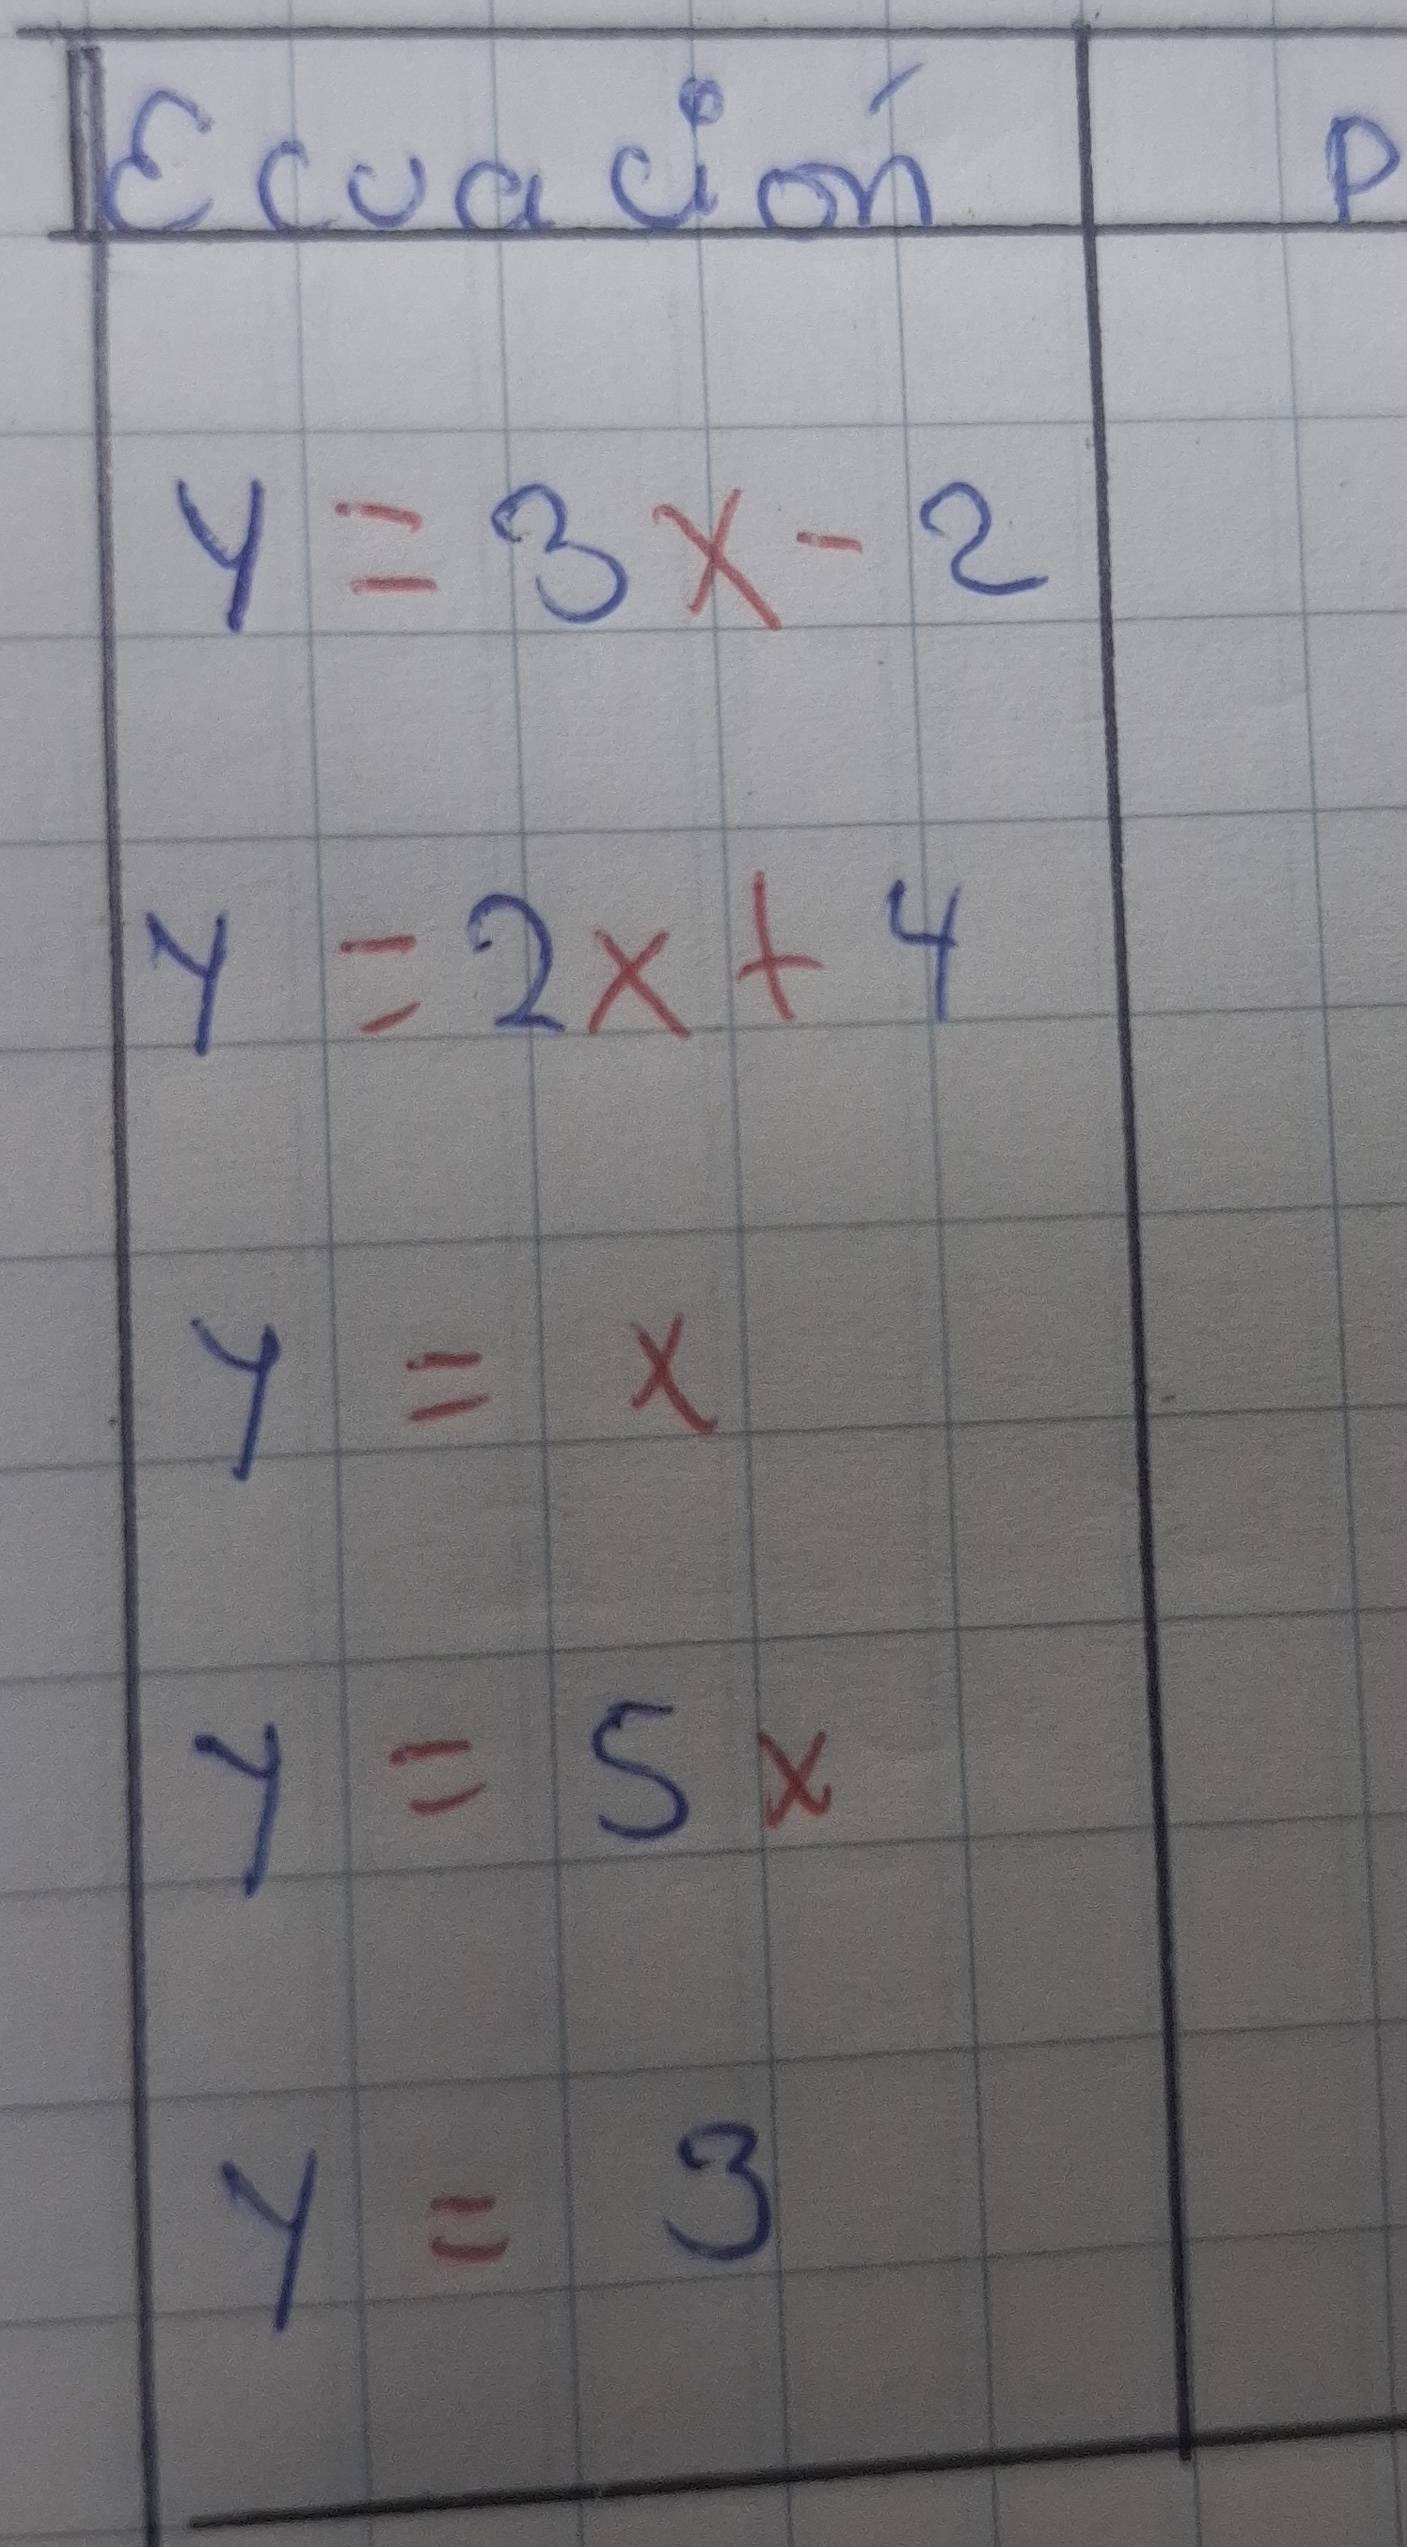 Ecuación P
y = 3x - 2
y = 2x + 4
y = x
y = 5x
y = 3